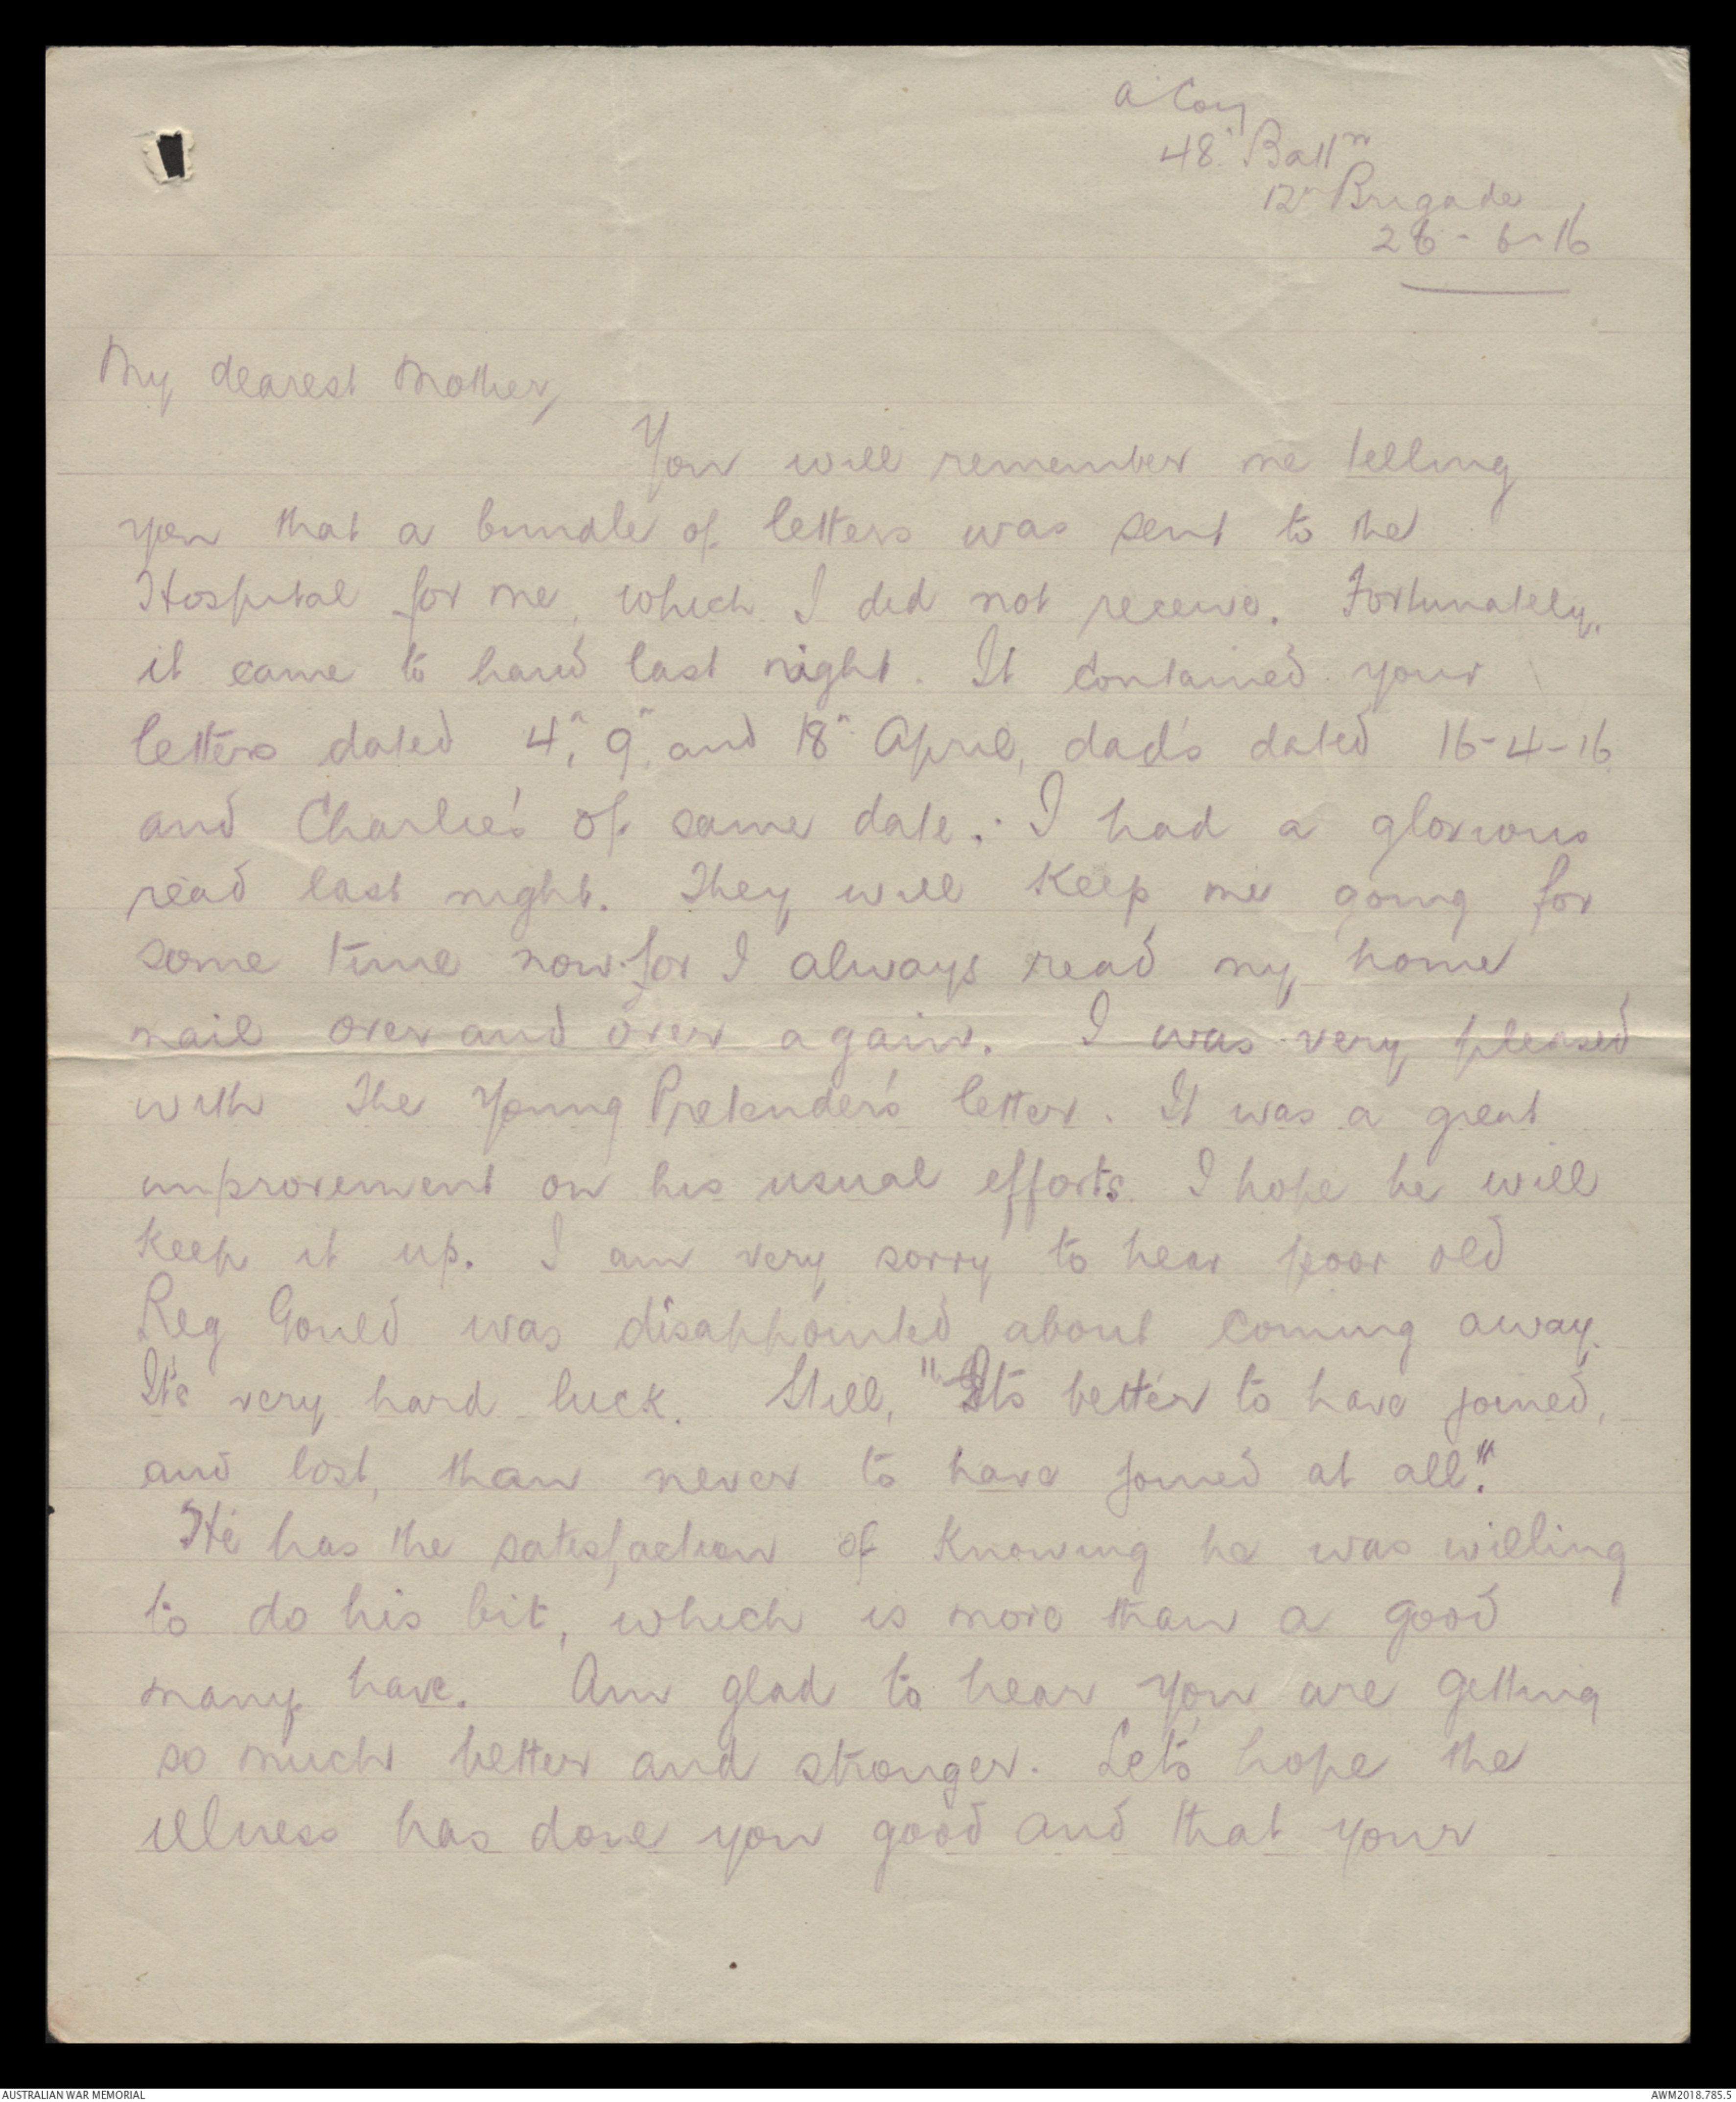 A Coy
48" Battn
12" Brigade
26-6-16
My dearest Mother,
You will remember me telling
you that a bundle of letters was sent to the
Hospital for me, which I did not receive. Fortunately,
it came to hand last night. It contained your
letters dated 4", 9", and 18" April, dad's dated 16-4-16
and Charlie's of same date. I had a glorious
read last night. They will keep me going for
some time now for I always read my home
mail over and over again. I was very pleased
with The Young Pretender's letter. It was a great
improvement on his usual efforts. I hope he will
keep it up. I am very sorry to hear poor old
Reg Gould was disappointed about coming away.
It's very hard luck. Still, "It's better to have joined,
and lost, than never to have joined at all".
He has the satisfaction of knowing he was willing
to do his bit, which is more than a good
many have. Am glad to hear you are getting
so much better and stronger. Let's hope the
illness has done you good and that your
AUSTRALIAN WAR MEMORIAL
AWM2018.785.5